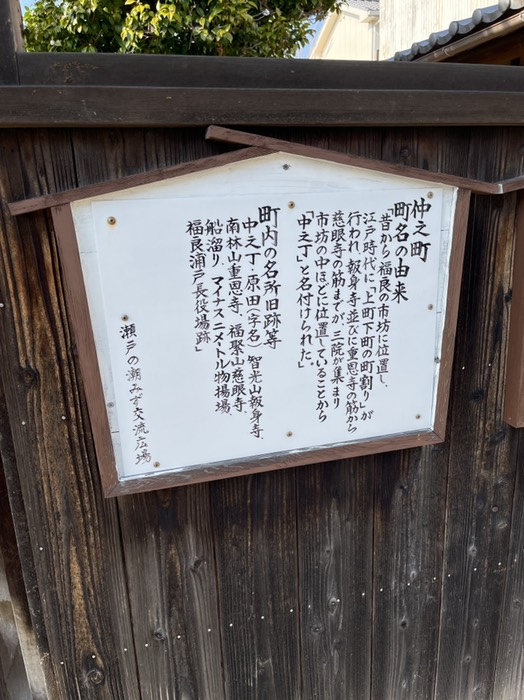 仲之町
町名の由来
「昔から福良の市坊に位置し、
江戸時代に、上町下町の町割り」が
行われ、報身寺並びに重恩寺の筋から
慈眼寺の筋までが、三院が集まり
市坊の中ほどに位置していることから
「中之丁」と名付けられた」
町内の名所旧跡等
中之丁・原田(字名)智光山報身寺、
南林山・重恩寺、福聚山慈眼寺、
船溜り、マイナス二メートル物揚場、
福良浦戸長役場跡」
瀬戸の潮みず交流広場